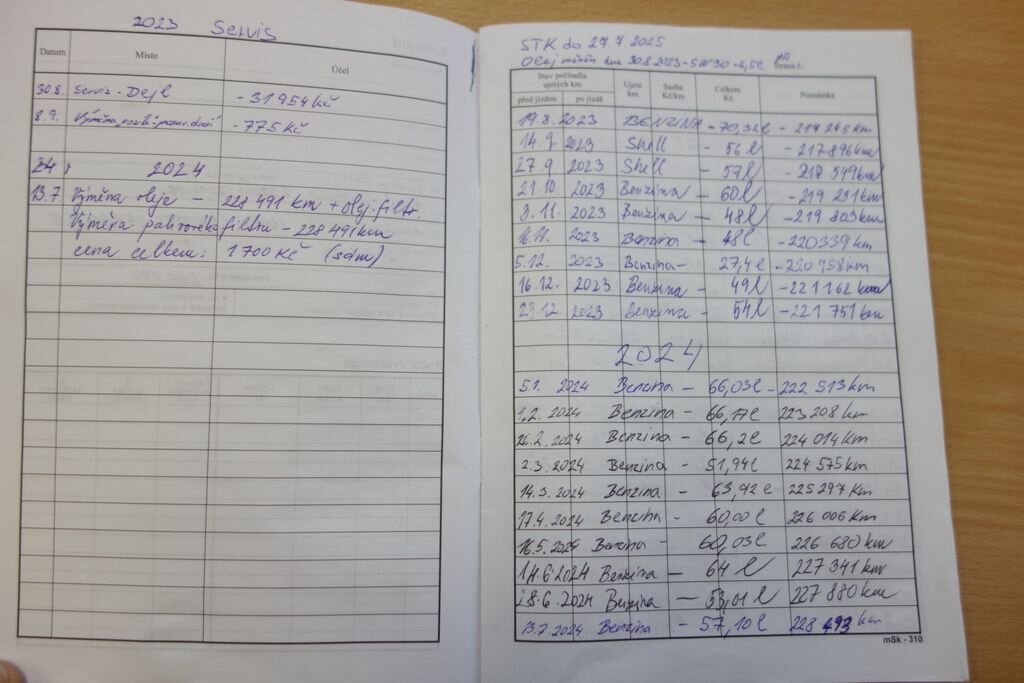 2023 Servis
Datum Místo Účel
30.8. Servis - Dejl - 31 954 Kč
8.9. Výměna - 775 Kč
2024
13.7 Výměna oleje - 228 491 km + olej. filtr.
Výměna palivového filtru - 228 491 km
cena celkem: 1 700 Kč (sám)
STK do 27.7.2025
Olej měněn dne 30.8.2023 - 5W30 - 6,5l
Strana č.:
Stav počítadla ujetých km Ujeté km Sazba Kč/km Celkem Kč Poznámka
před jízdou po jízdě
19.8.2023 BENZINA - 70,32l - 217 245 km
14.9. 2023 Shell - 56 l - 217 896 km
27.9 2023 Shell - 57 l - 218 549 km
21.10. 2023 Benzina - 60 l - 219 231 km
3.11. 2023 Benzina - 48 l - 219 803 km
16.11. 2023 Benzina - 48 l - 220 339 km
5.12. 2023 Benzina - 27,4 l - 220 958 km
16.12. 2023 Benzina - 49 l - 221 162 km
29.12 2023 Benzina - 54 l - 221 751 km
2024
5.1. 2024 Benzina - 66,03 l - 222 513 km
1.2. 2024 Benzina - 66,17 l 223 208 km
26.2. 2024 Benzina - 66,2 l 224 014 km
2.3. 2024 Benzina - 51,94 l 224 575 km
14.3. 2024 Benzina - 63,92 l 225 297 km
17.4. 2024 Benzina - 60,00 l 226 006 km
16.5. 2024 Benzina - 60,03 l 226 680 km
14.6.2024 Benzina - 64 l 227 341 km
28.6.2024 Benzina - 53,01 l 227 880 km
13.7.2024 Benzina - 57,10 l 228 493 km
mSk - 310